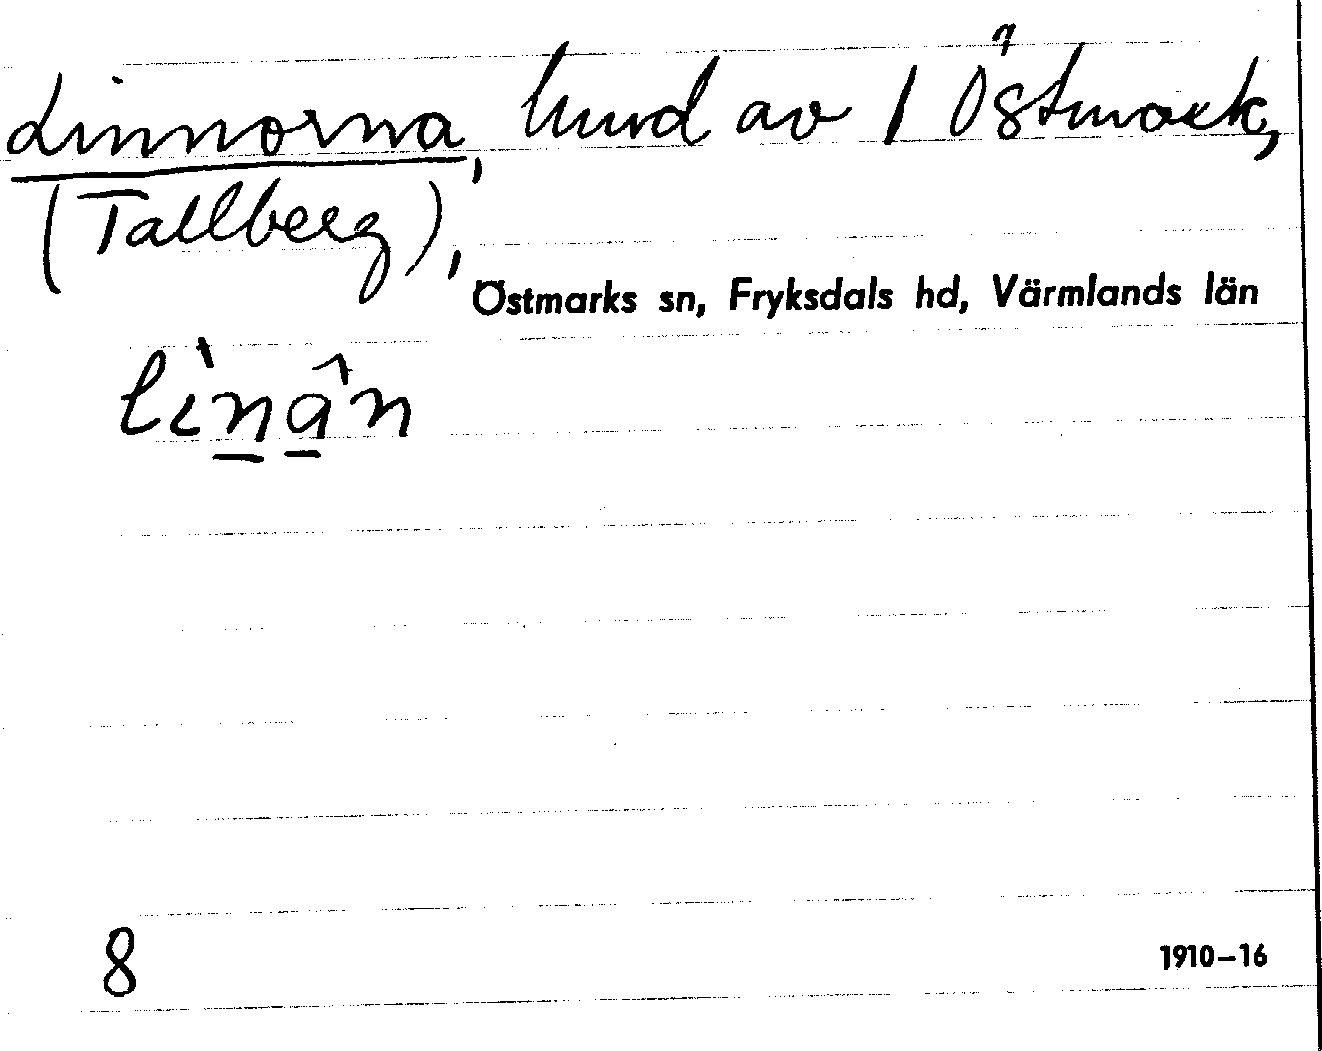 Linnorna, lund av 1 Östmark,
(Tallberg),
Östmarks sn, Fryksdals hd, Värmlands län
lìnân
8
1910–16